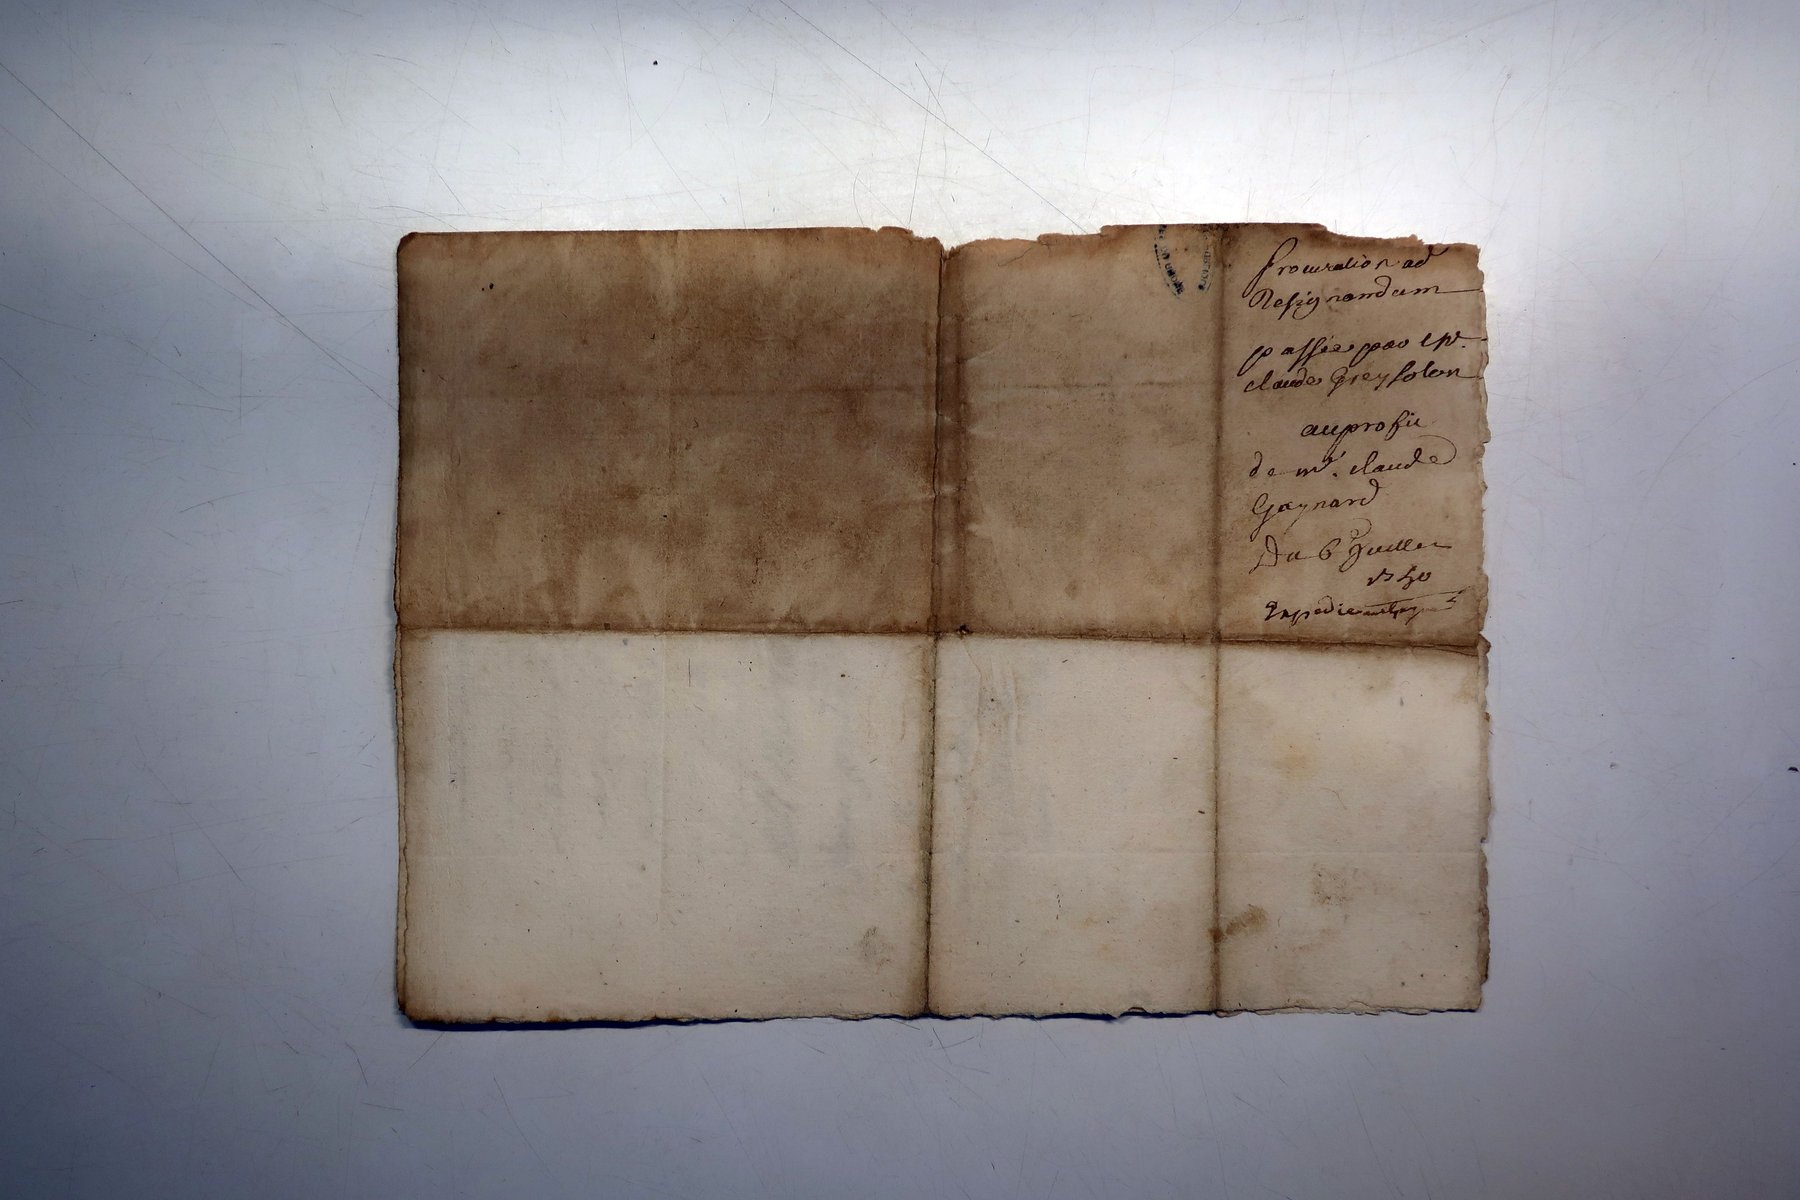 Procuration ad
Resignandum
passée par Mr.
claude Greysolon
au profit
de mr. claude
Gaynard
Du 6e Juillet
1740
Expedié